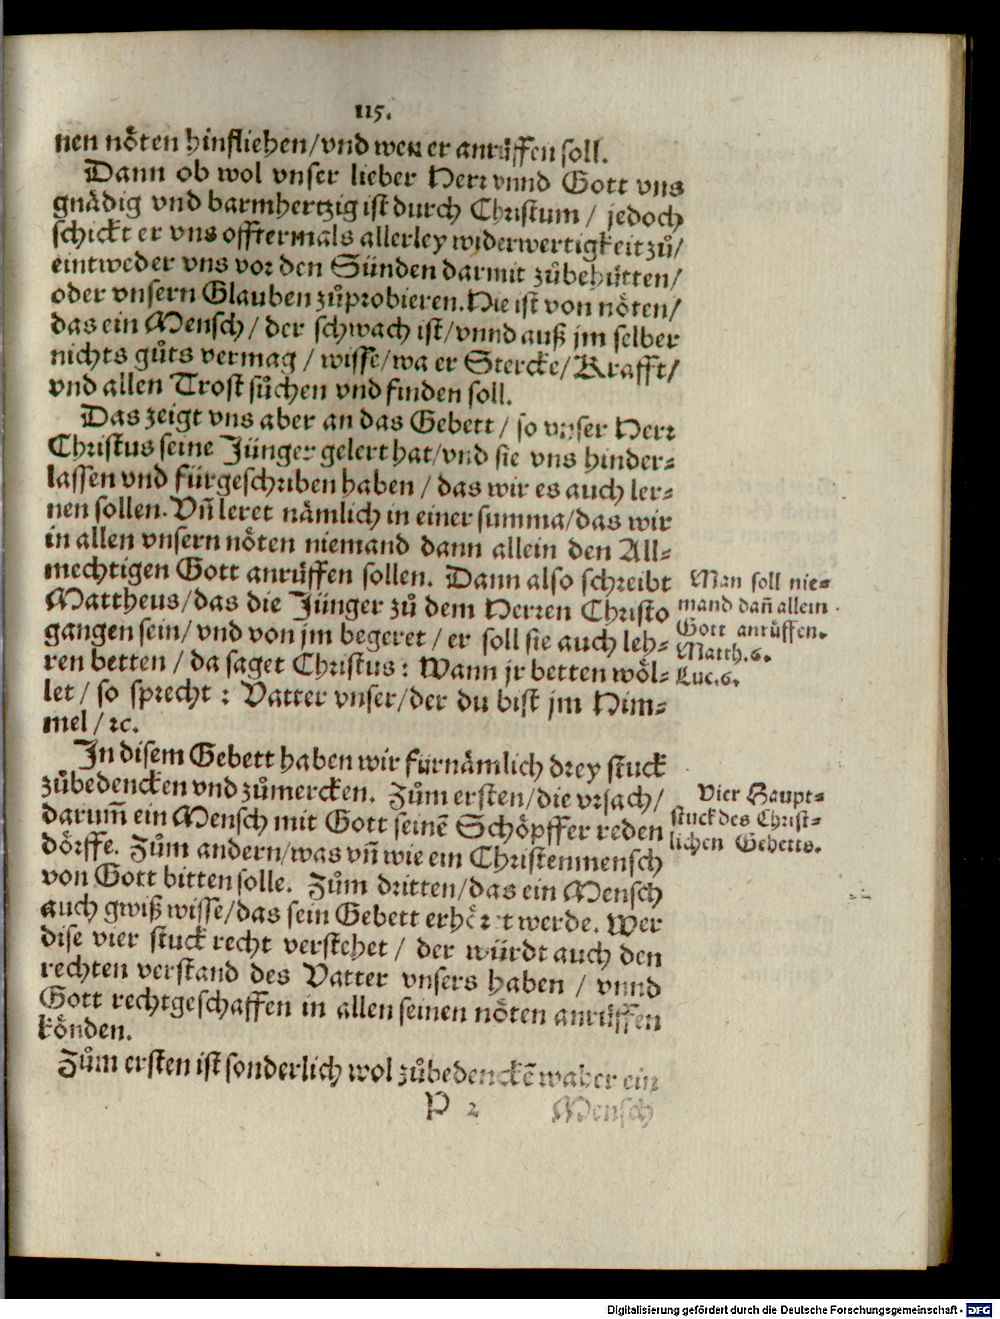 115.
nen nöten hinfliehen/vnd wen er anrůffen soll.
Dann ob wol vnser lieber Herr vnnd Gott vns
gnädig vnd barmhertzig ist durch Christum / jedoch
schickt er vns offtermals allerley widerwertigkeit zů/
eintweder vns vor den Sünden darmit zůbehütten/
oder vnsern Glauben zůprobieren. Hie ist von nöten/
das ein Mensch / der schwach ist/vnnd auß jm selber
nichts gůts vermag / wisse/wa er Stercke/Krafft/
vnd allen Trost sůchen vnd finden soll.
Das zeigt vns aber an das Gebett / so vnser Herr
Christus seine Jünger gelert hat/vnd sie vns hinder-
lassen vnd fürgeschriben haben / das wir es auch ler-
nen sollen. Vñ leret nämlich in einer summa/das wir
in allen vnsern nöten niemand dann allein den All-
mechtigen Gott anrůffen sollen. Dann also schreibt
Mattheus/das die Jünger zů dem Herren Christo
gangen sein/vnd von jm begeret / er soll sie auch leh-
ren betten / da saget Christus: Wann jr betten wöl-
let / so sprecht: Vatter vnser/der du bist jm Him-
mel / ꝛc.
Man soll nie-
mand dañ allein
Gott anrůffen.
Matth.6.
Luc.6.
In disem Gebett haben wir fürnämlich drey stuck
zůbedencken vnd zůmercken. Zům ersten/die vrsach/
darum̃ ein Mensch mit Gott seinẽ Schöpffer reden
dörffe. Zům andern/was vñ wie ein Christenmensch
von Gott bitten solle. Zům dritten/das ein Mensch
auch gwiß wisse/das sein Gebett erhört werde. Wer
dise vier stuck recht verstehet / der würdt auch den
rechten verstand des Vatter vnsers haben / vnnd
Gott rechtgeschaffen in allen seinen nöten anrůffen
könden.
Vier Haupt-
stuck des Christ-
lichen Gebetts.
Zům ersten ist sonderlich wol zůbedenckẽ waher ein
P 2 Mensch
Digitalisierung gefördert durch die Deutsche Forschungsgemeinschaft - DFG